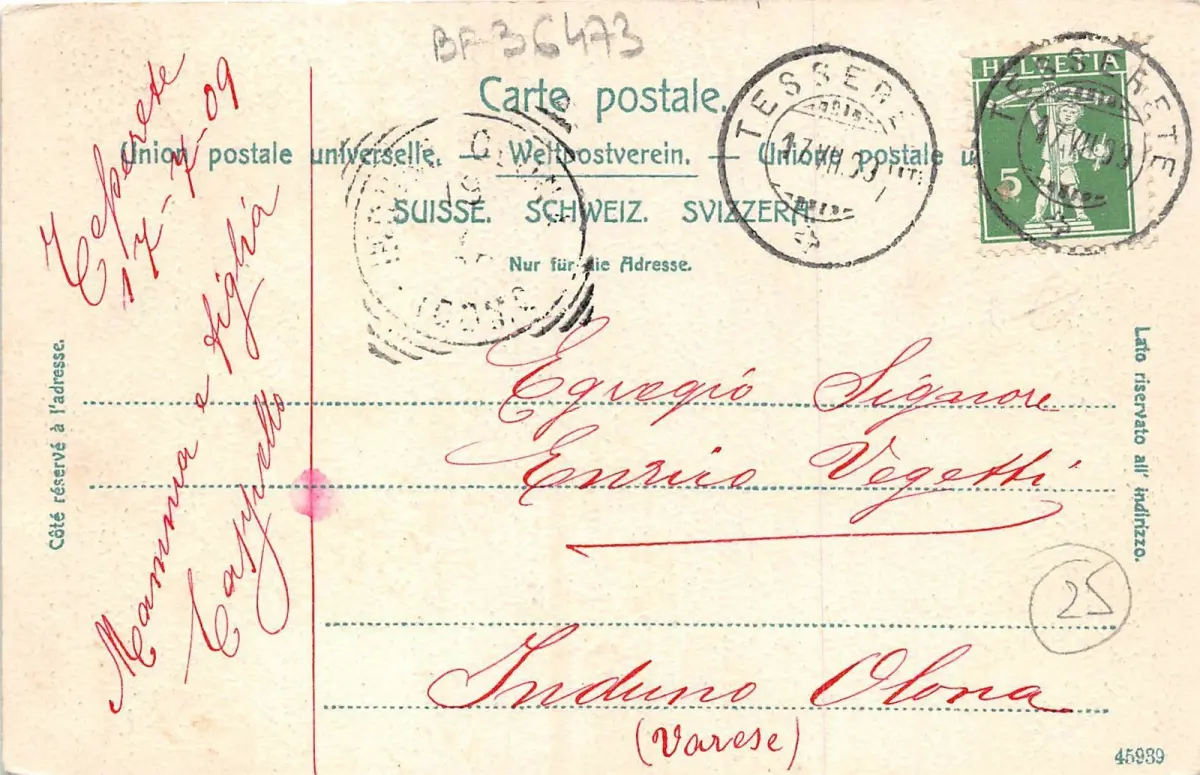 BF-36473
Carte postale.
Union postale universelle. — Weltpostverein. — Unione postale u
SUISSE. SCHWEIZ. SVIZZERA.
Nur für die Adresse.
TESSERETE
17.VII.09
HELVETIA
5
TESSERETE
17.VII.09
INDUNO OLONA
(COMO)
19
Tesserete
17-7-09
Mamma e figlia
Côté réservé à l'adresse.
Lato riservato all' indirizzo.
Egregio Signore
Enrico Vegetti
25
Induno Olona
(Varese)
45939